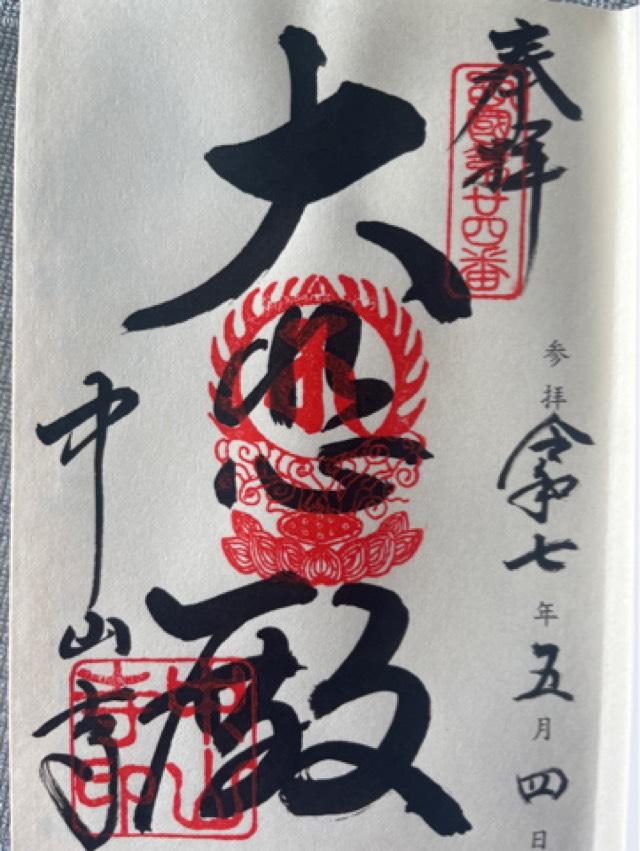 奉拝
西國第廿四番
参拝 令和七年五月四日
大悲殿
中山寺
中山寺印